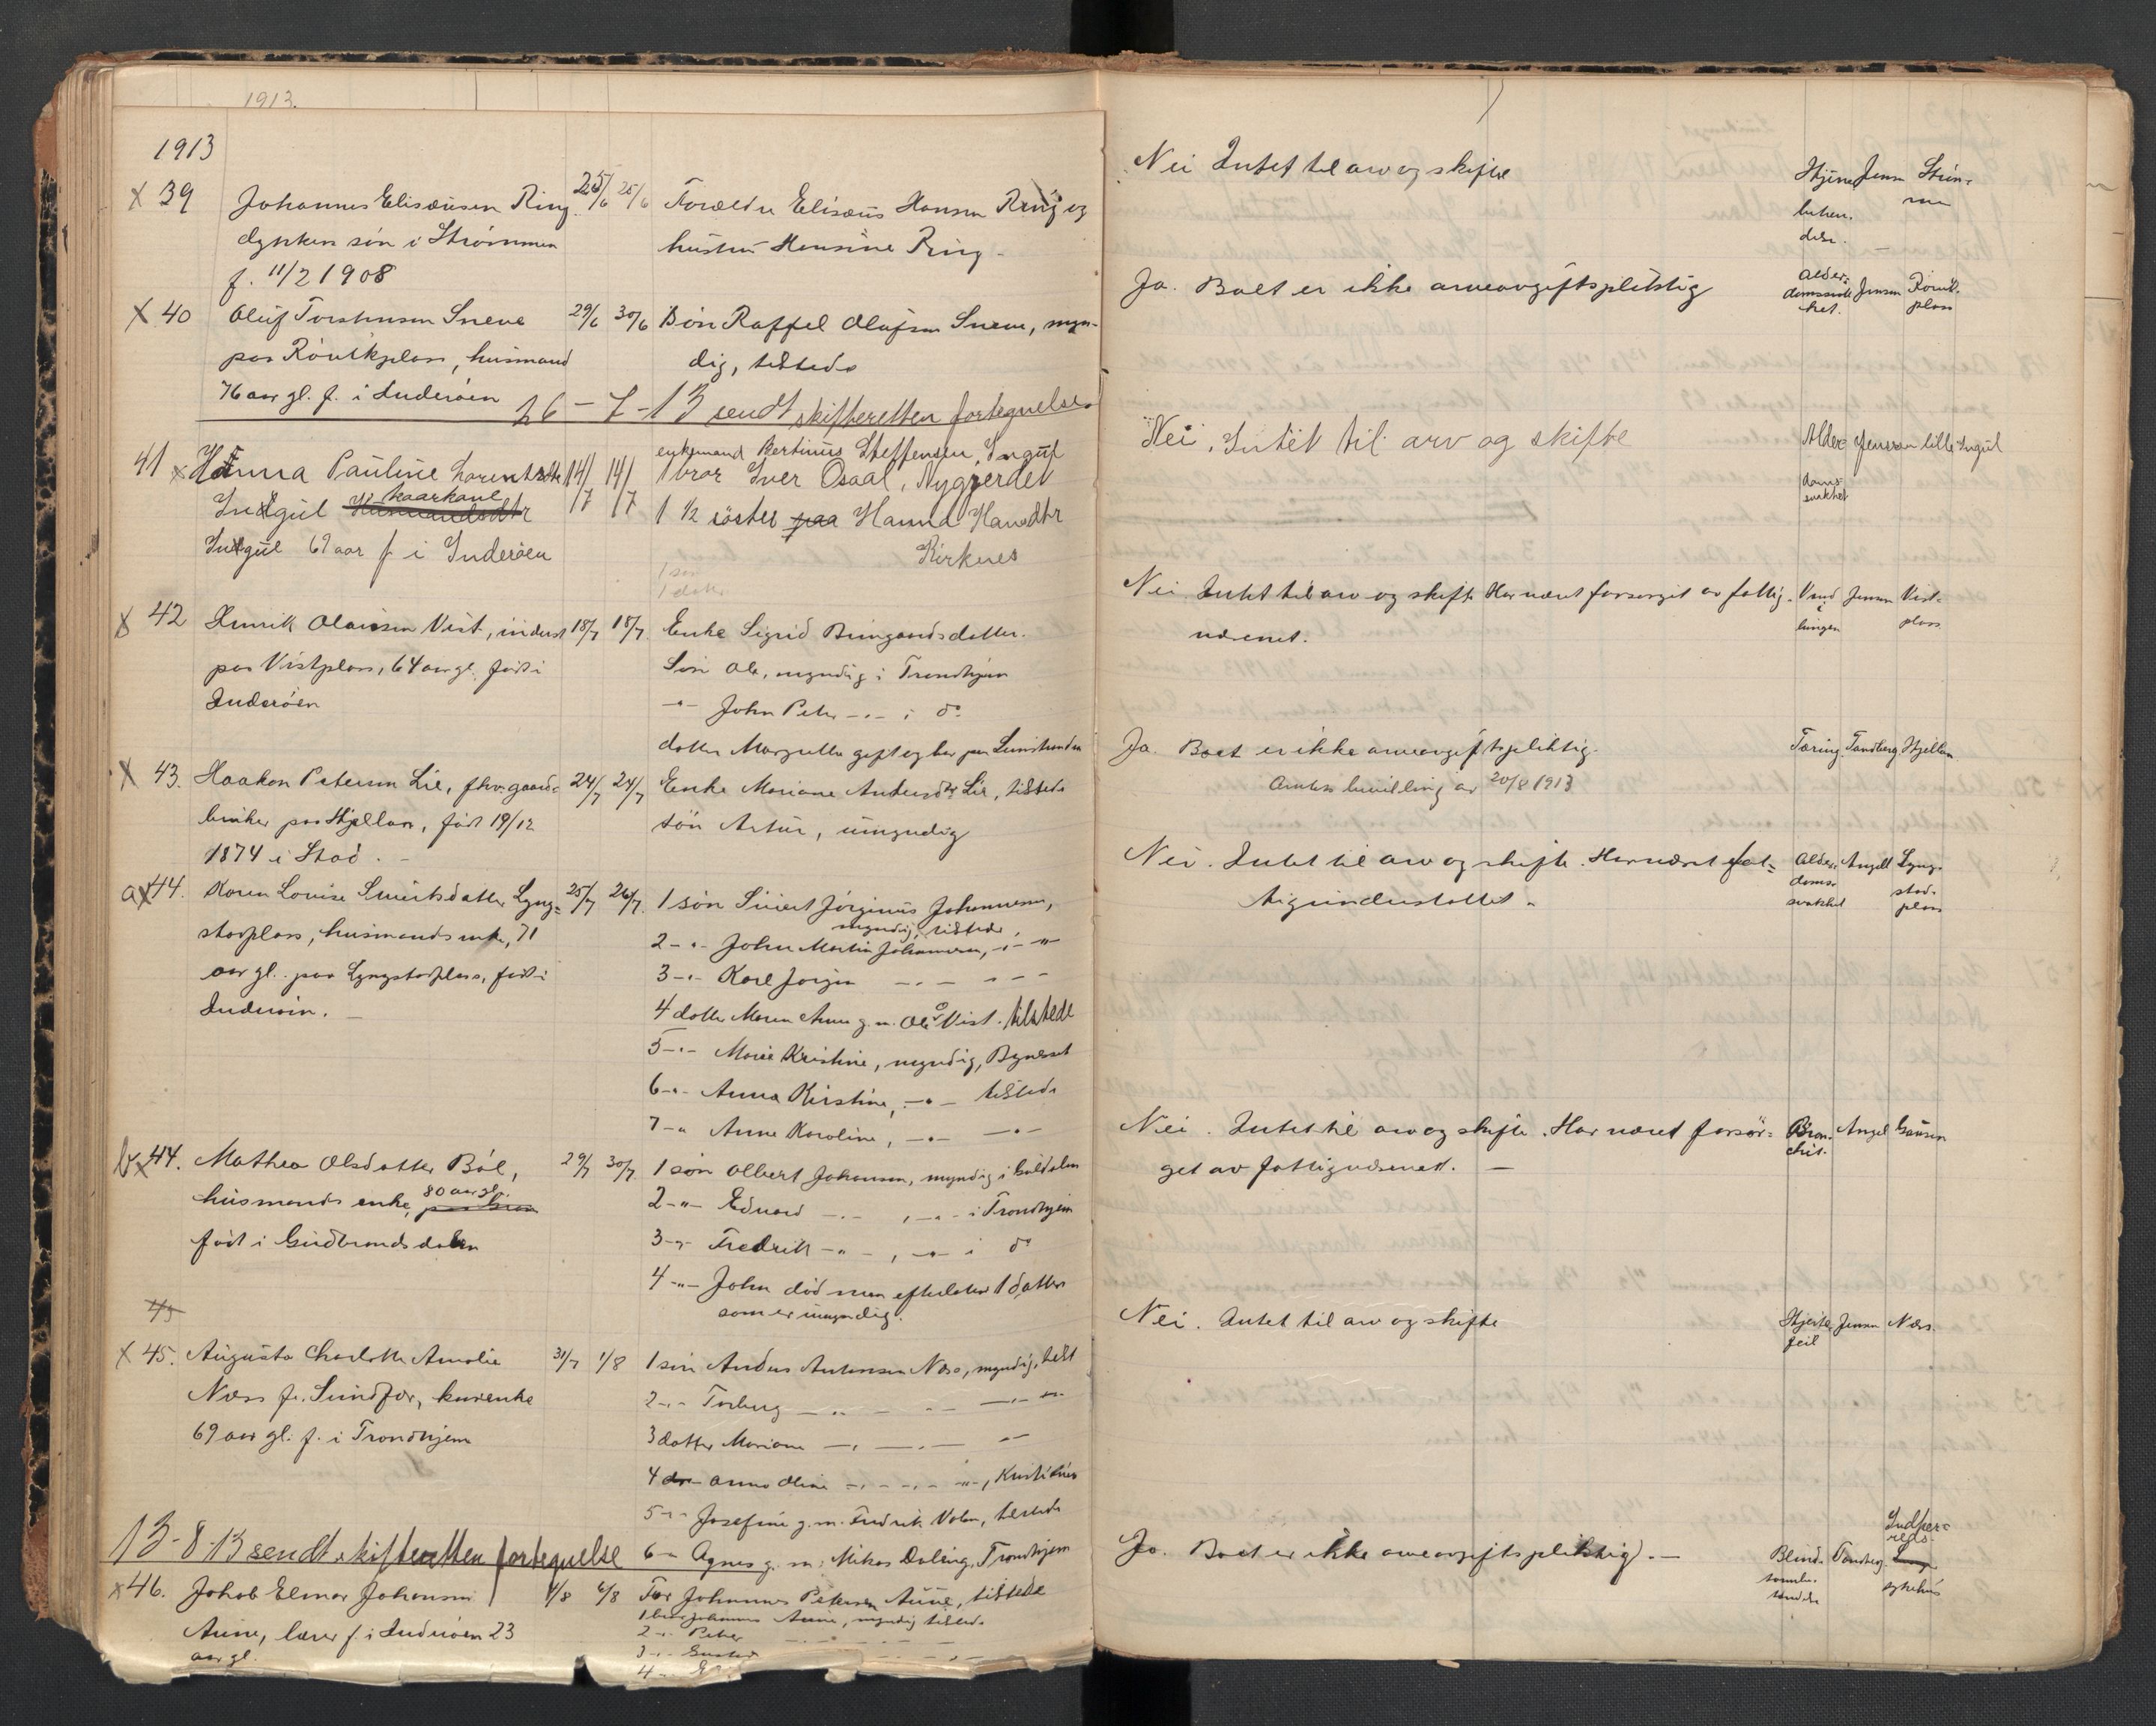 1913.
1913
x 39
Johannes Elisæusen Ring
dyrkers søn i Strømmen
f. 11/2 1908
25/6 25/6
Forældre Elisæus Hansen Ring og
hustru Hansine Ring
x 40
Oluf Torstensen Sneve
paa Røvikplass, husmand
76 aar gl. f. i Inderøen
29/6 30/6
Søn Raffel Olufsen Sneve, myn-
dig, tilstede
26-7-13 sendt skifteretten fortegnelse
41 x
Hanna Pauline Larentsdtr
kaarkone
Indgul
Indgul 69 aar f i Inderøen
14/7 14/7
enkemand Bertinus Steffensen, Ingul
1 bror Iver Osaal, Nygjerdet
1 1/2 søster paa Hanna Hansdtr
Kirkenes
1 søn
1 datter
x 42
Henrik Olausen Vist, inderst
paa Vistplass, 64 aar gl. født i
Inderøen
18/7 18/7.
Enke Sigrid Bungaardsdatter.
Søn Ole, myndig i Trondhjem
-"- John Peter -"- i do
datter Margrethe gift og bor paa
x 43.
Haakon Petersen Lie, fhv. gaard-
bruker paa Hjellan, født 19/12
1874 i Stod. -
24/7 24/7
Enke Mariane Andersdtr Lie, tilstede
søn Artur, umyndig
ax44.
Karen Lovise Sivertsdatter Lyng-
stadplass, husmands enke, 71
aar gl. paa Lyngstadplass, født i
Inderøen. -
25/7 26/7.
1 søn Sivert Jørginus Johannesen,
myndig, tilstede
2 -"- John Martin Johannesen, -"- "
3 -"- Karl Jørgen -"- -"-
4 datter Maren Anna g. m. Ole Vist. tilstede
5 -"- Marie Kristine, myndig, Bynesset
6 -"- Anna Kirstine, -"- tilstede
7 -" Anne Karoline, -"- -"-
bx44.
Mathea Olsdatter Bøl,
80 aar gl.
husmands enke,
født i Gudbrandsdalen
29/7 30/7
1 søn Albert Johansen, myndig i Guldalen
2 -"- Edvard -"- , -"- i Trondhjem
3 -"- Fredrik -"- , -"- i do
4 -"- John død men efterlater 1 datter
som er umyndig.
45
x 45.
Augusta Charlotte Amalie
Næss f. Sundfær, kaarenke
69 aar gl. f. i Trondhjem
31/7 1/8
1 søn Anders Antonsen Næss, myndig, tilst
2 -"- Torberg -"- -"- -"-
3 datter Mariane -"- -"- -"-
4 Anna Oline -"- -"- -"-,
5 -"- Josefine g. m. Fredrik Volen, tilstede
6 -" Agnes g. m. Mikas Doling, Trondhjem
13-8-13 sendt skifteretten fortegnelse
x46.
Jakob Elmar Johansen
Aune, lærer f. i Inderøen 23
aar gl.
4/8 6/8
Far Johannes Petersen Aune, tilstede
1 bror Johannes Aune, myndig tilstede
2 -"- Peter -"- -"- -"-
3 -"- Gustav -"- -"-
4 -"-
Nei Intet til arv og skifte
Hjerne Jensen Strøm-
beten- men
delse. -
Ja. Boet er ikke arveavgiftspliktig
Alder- Jensen Røvik-
domssvak- plass
het.
Nei, Intet til arv og skifte
Alder- Jensen lille Ingul
doms-
svakhet
Nei. Intet til arv og skifte Har været forsørget av fattig-
væsenet.
Vand i Jensen Vist-
lungen plass
Ja. Boet er ikke arveavgiftspliktig.
Amtets bevilling av 20/8 1913
Tæring. Tandberg Hjellan
Nei. Intet til arv og skifte. Har været fat-
tigunderstøttet.
Alder- Angell Lyng-
doms- stad-
svakhet plass
Nei. Intet til arv og skifte. Har været forsør-
get av fattigvæsenet. -
Bron- Angel
chit.
Nei. Intet til arv og skifte
Hjerte- Jensen Næss.
feil
Ja. Boet er ikke arveavgiftspliktig. -
Blind- Tandberg Indher-
tarmbe- reds-
tændelse sykehus